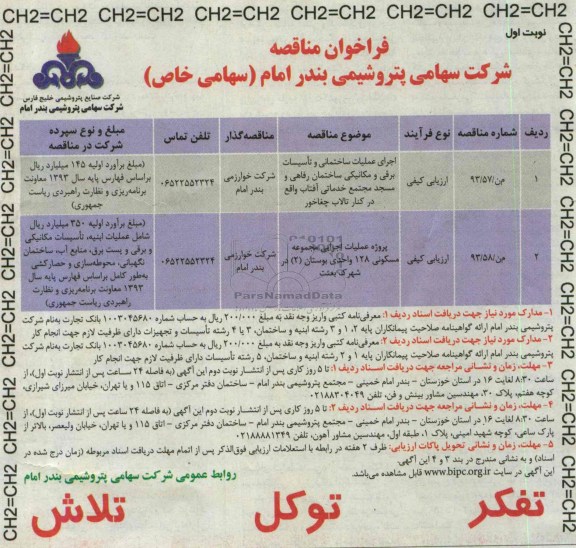 CH2=CH2 CH2=CH2 CH2=CH2 CH2=CH2 CH2=CH2 CH2=CH2
نوبت اول
فراخوان مناقصه
شرکت سهامی پتروشیمی بندر امام (سهامی خاص)
شرکت صنایع پتروشیمی خلیج فارس
شرکت سهامی پتروشیمی بندر امام
ردیف شماره مناقصه نوع فرآیند موضوع مناقصه مناقصه‌گذار تلفن تماس مبلغ و نوع سپرده شرکت در مناقصه
۱ م‌ن/۹۳/۵۷ ارزیابی کیفی اجرای عملیات ساختمانی و تأسیسات برقی و مکانیکی ساختمان رفاهی و مسجد مجتمع خدماتی آفتاب واقع در کنار تالاب چغاخور شرکت خوارزمی بندر امام ۰۶۵۲۲۵۵۲۳۲۴ (مبلغ برآورد اولیه ۱۴۵ میلیارد ریال براساس فهارس پایه سال ۱۳۹۳ معاونت برنامه‌ریزی و نظارت راهبردی ریاست جمهوری)
۲ م‌ن/۹۳/۵۸ ارزیابی کیفی پروژه عملیات اجرایی مجموعه مسکونی ۱۲۸ واحدی بوستان (۲) در شهرک بعثت شرکت خوارزمی بندر امام ۰۶۵۲۲۵۵۲۳۲۴ (مبلغ برآورد اولیه ۳۵۰ میلیارد ریال شامل عملیات ابنیه، تأسیسات مکانیکی و برقی و پست برق، منابع آب، ساختمان نگهبانی، محوطه‌سازی و حصارکشی به‌طور کامل براساس فهارس پایه سال ۱۳۹۳ معاونت برنامه‌ریزی و نظارت راهبردی ریاست جمهوری)
ParsNamadData
۱- مدارک مورد نیاز جهت دریافت اسناد ردیف ۱: معرفی‌نامه کتبی واریز وجه نقد به مبلغ ۲۰۰/۰۰۰ ریال به حساب شماره ۱۰۰۳۰۴۵۶۸۰ بانک تجارت به‌نام شرکت
پتروشیمی بندر امام ارائه گواهینامه صلاحیت پیمانکاران پایه ۱، ۲ و ۳ رشته ابنیه و ساختمان، ۳ یا ۴ رشته تأسیسات و تجهیزات دارای ظرفیت لازم جهت انجام کار
۲- مدارک مورد نیاز جهت دریافت اسناد ردیف ۲: معرفی‌نامه کتبی واریز وجه نقد به مبلغ ۲۰۰/۰۰۰ ریال به حساب شماره ۱۰۰۳۰۴۵۶۸۰ بانک تجارت به‌نام شرکت
پتروشیمی بندر امام ارائه گواهینامه صلاحیت پیمانکاران پایه ۱ و ۲ رشته ابنیه و ساختمان، ۵ رشته تأسیسات دارای ظرفیت لازم جهت انجام کار
۳- مهلت، زمان و نشانی مراجعه جهت دریافت اسناد ردیف ۱: تا ۵ روز کاری پس از انتشار نوبت دوم این آگهی (به فاصله ۲۴ ساعت پس از انتشار نوبت اول)، از
ساعت ۸:۳۰ لغایت ۱۶ در استان خوزستان - بندر امام خمینی - مجتمع پتروشیمی بندر امام - ساختمان دفتر مرکزی - اتاق ۱۱۵ و یا تهران، خیابان میرزای شیرازی،
کوچه هفتم، پلاک ۳۰، مهندسین مشاور بینش و فن، تلفن ۰۲۱۸۸۳۰۴۰۴۹
۴- مهلت، زمان و نشانی مراجعه جهت دریافت اسناد ردیف ۲: تا ۵ روز کاری پس از انتشار نوبت دوم این آگهی (به فاصله ۲۴ ساعت پس از انتشار نوبت اول)، از
ساعت ۸:۳۰ لغایت ۱۶ در استان خوزستان - بندر امام خمینی - مجتمع پتروشیمی بندر امام - ساختمان دفتر مرکزی - اتاق ۱۱۵ و یا تهران، خیابان ولیعصر، بالاتر از
پارک ساعی، کوچه شهید امینی، پلاک ۱، طبقه اول، مهندسین مشاور آهون، تلفن ۰۲۱۸۸۸۸۱۳۴۹
۵- مهلت، زمان و نشانی تحویل پاکات ارزیابی: ظرف ۲ هفته در رابطه با استعلامات ارزیابی فوق‌الذکر پس از اتمام مهلت دریافت اسناد مربوطه (زمان درج شده در
اسناد) و به نشانی مندرج در بند ۳ و ۴ این آگهی.
این آگهی در سایت www.bipc.org.ir قابل مشاهده می‌باشد.
روابط عمومی شرکت سهامی پتروشیمی بندر امام
تفکر توکل تلاش